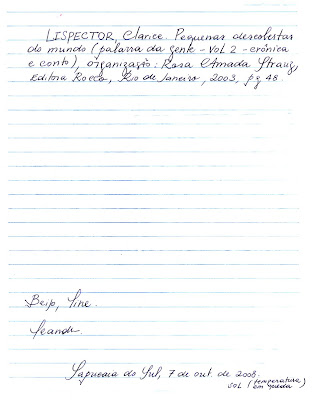 LISPECTOR, Clarice. Pequenas descobertas
do mundo (palavra da gente - Vol. 2 - crônica
e conto), organização: Rosa Amada Strauz,
Editora Rocco, Rio de Janeiro, 2003, pg 48.
Sapucaia do Sul, 7 de out. de 2008.
SOL (temperatura
em queda)